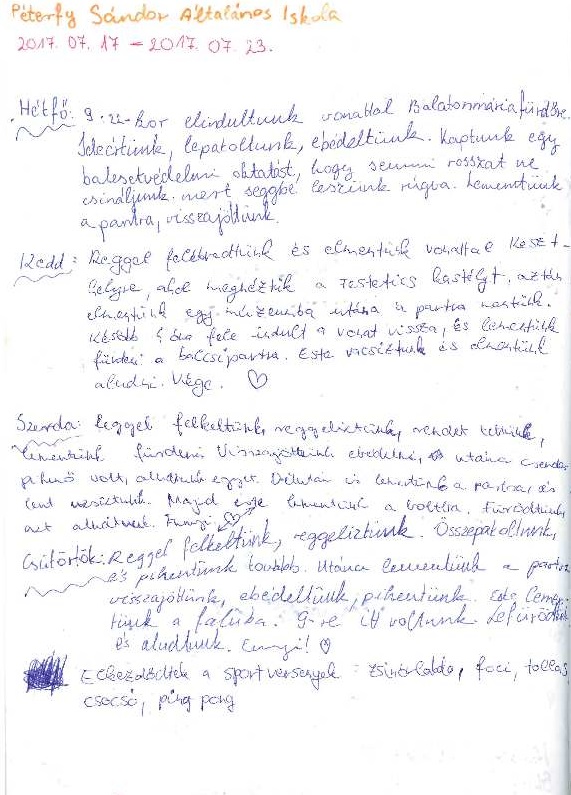 Péterfy Sándor Általános Iskola
2017. 07. 17 – 2017. 07. 23.
Hétfő: 9.22-kor elindultunk vonattal Balatonmáriafürdőre.
lepakoltunk, ebédeltünk. Kaptunk egy
balesetvédelmi oktatást, hogy semmi rosszat ne
csináljunk. mert seggbe leszünk rúgva. Lementünk
a partra, visszajöttünk.
Kedd: Reggel felébredtünk és elmentünk vonattal Keszt-
helyre, ahol megnéztük a kastélyt, aztán
elmentünk egy múzeumba utána a partra mentünk.
Később 5 óra fele indult a vonat vissza, és lementünk
fürdeni a partra. Este és elmentünk
aludni. Vége. ♡
Szerda: Reggel felkeltünk, reggeliztünk, rendet tettünk,
lementünk fürdeni. Visszajöttünk ebédelni, utána csendes
pihenő volt, aludtunk egyet. Délután is lementünk a partra, és
lent Majd este lementünk a boltba. Fürödtünk,
azt aludtunk. Ennyi ♡
Csütörtök: Reggel felkeltünk, reggeliztünk. Összepakoltunk,
és pihentünk tovább. Utána lementünk a partra
visszajöttünk, ebédeltünk, pihentünk. Este lemen-
tünk a faluba. 9-re itt voltunk. Lefürödtünk
és aludtunk. Ennyi! ♡
Elkezdődtek a sportversenyek: zsinórlabda, foci, tollas
csocsó, ping pong